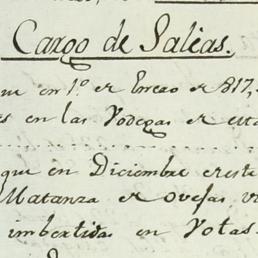 Cargo de Saleas.
que en 1º de Enero de 817,
es en las Vodegas de esta
que en Diciembre de este
Matanza de ovejas
imbertida en Votas